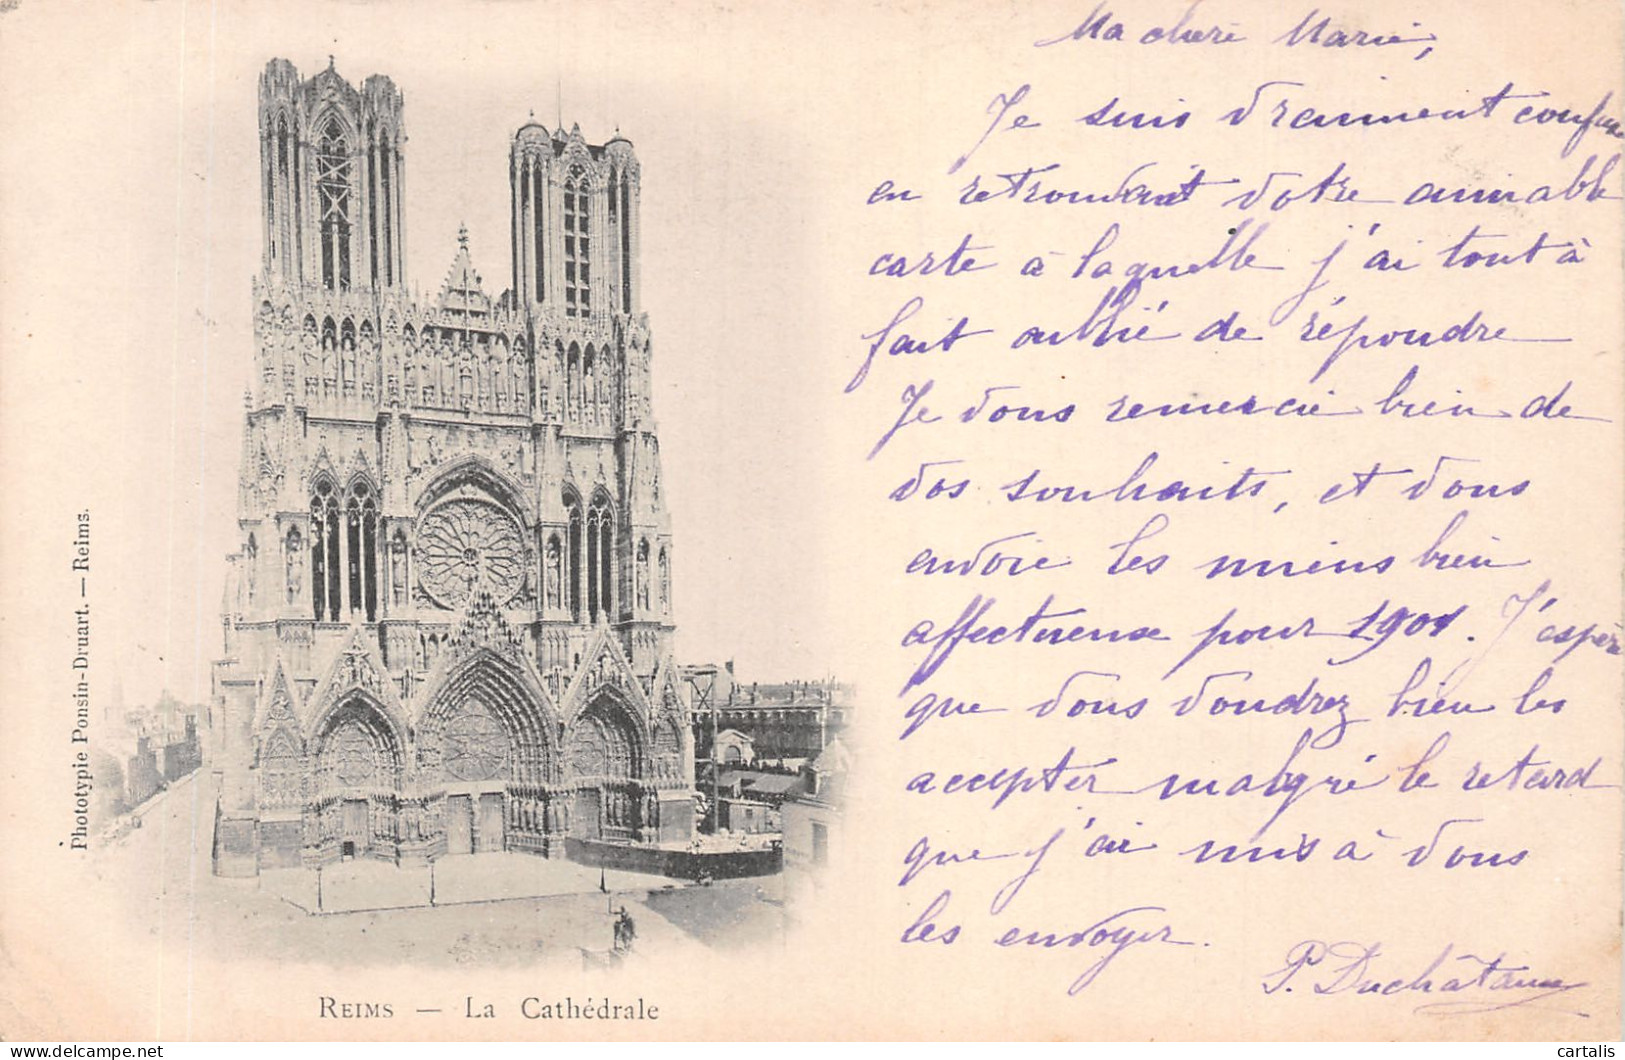 Ma chère Marie,
Je suis vraiment confuse
en retrouvant votre aimable
carte à laquelle j'ai tout à
fait oublié de répondre
Je vous remercie bien de
vos souhaits, et vous
envoie les miens bien
affectueuse pour 1901. J'espère
que vous voudrez bien les
accepter malgré le retard
que j'ai mis à vous
les envoyer.
P. Duchâtaux
Phototypie Ponsin-Druart. — Reims.
REIMS — La Cathédrale
delcampe.net
cartalis